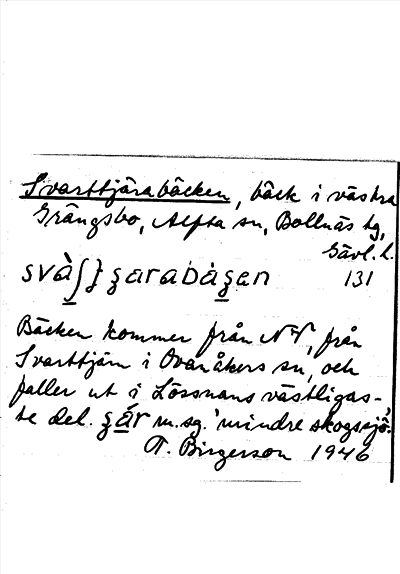 Svarttjärabäcken, bäck i västra
Grängsbo, Alfta sn, Bollnäs tg,
Gävl. l.
131
Bäcken kommer från NV, från
Svarttjärn i Ovanåkers sn, och
faller ut i Lössnans västligas-
te del. m. sg. 'mindre skogssjö'.
T. Birgerson 1946